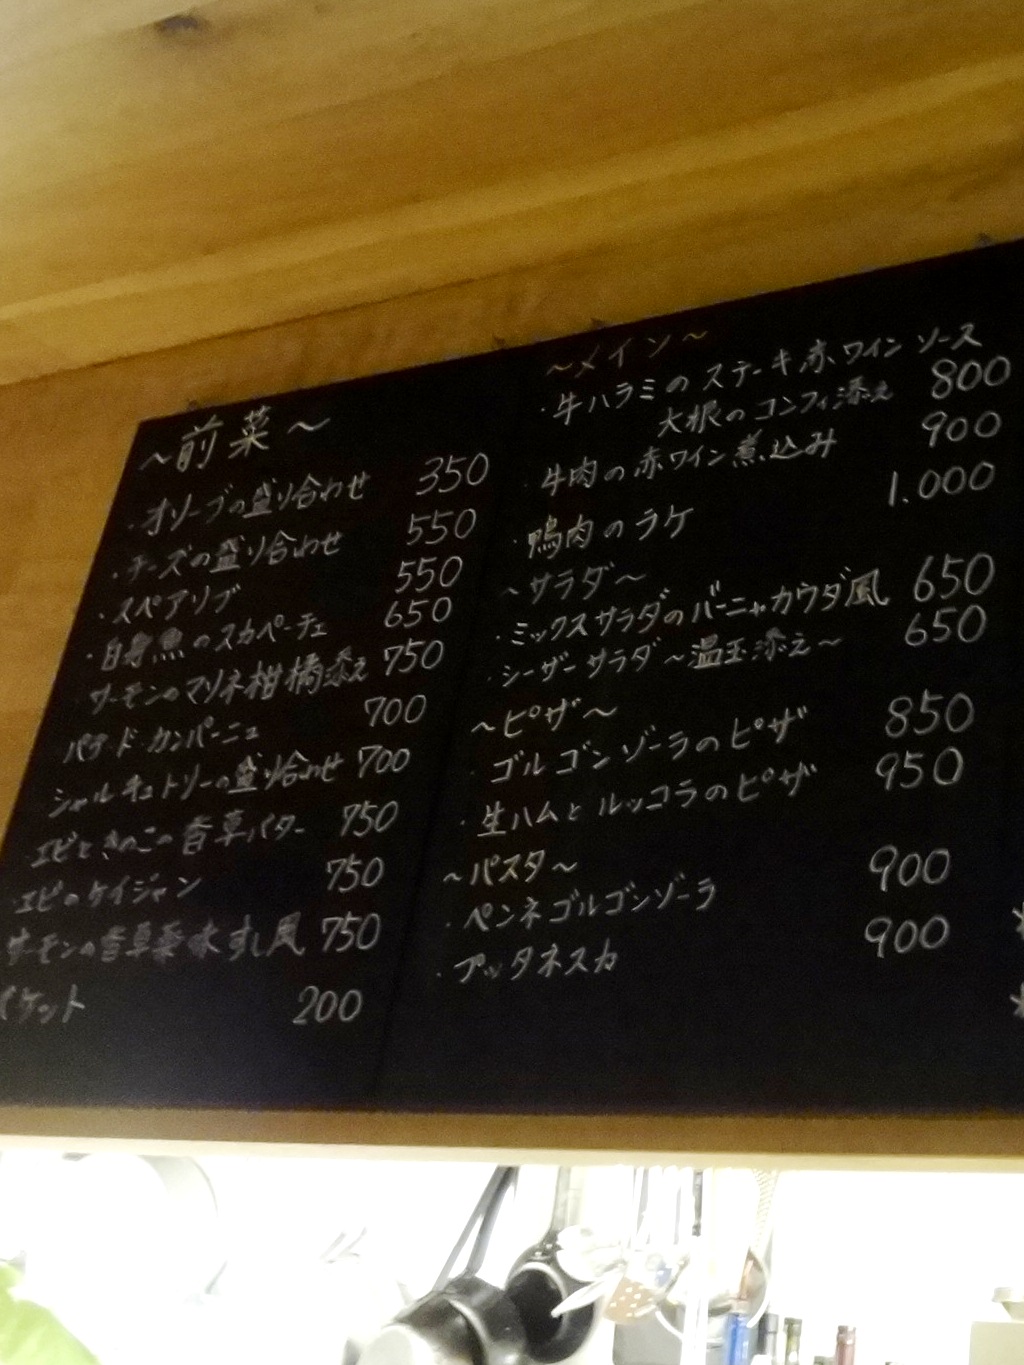 ～前菜～
・オリーブの盛り合わせ 350
・チーズの盛り合わせ 550
・スペアリブ 550
・白身魚のスカペーチェ 650
サーモンのマリネ柑橘添え 750
パテ・ド・カンパーニュ 700
シャルキュトリーの盛り合わせ 700
エビときのこの香草バター 750
エビのケイジャン 750
サーモンの香草薬味すし風 750
バケット 200
～メイン～
・牛ハラミのステーキ赤ワインソース
大根のコンフィ添え 800
・牛肉の赤ワイン煮込み 900
・鴨肉のラケ 1.000
～サラダ～
・ミックスサラダのバーニャカウダ風 650
・シーザーサラダ～温玉添え～ 650
～ピザ～
・ゴルゴンゾーラのピザ 850
・生ハムとルッコラのピザ 950
～パスタ～
・ペンネゴルゴンゾーラ 900
・プッタネスカ 900